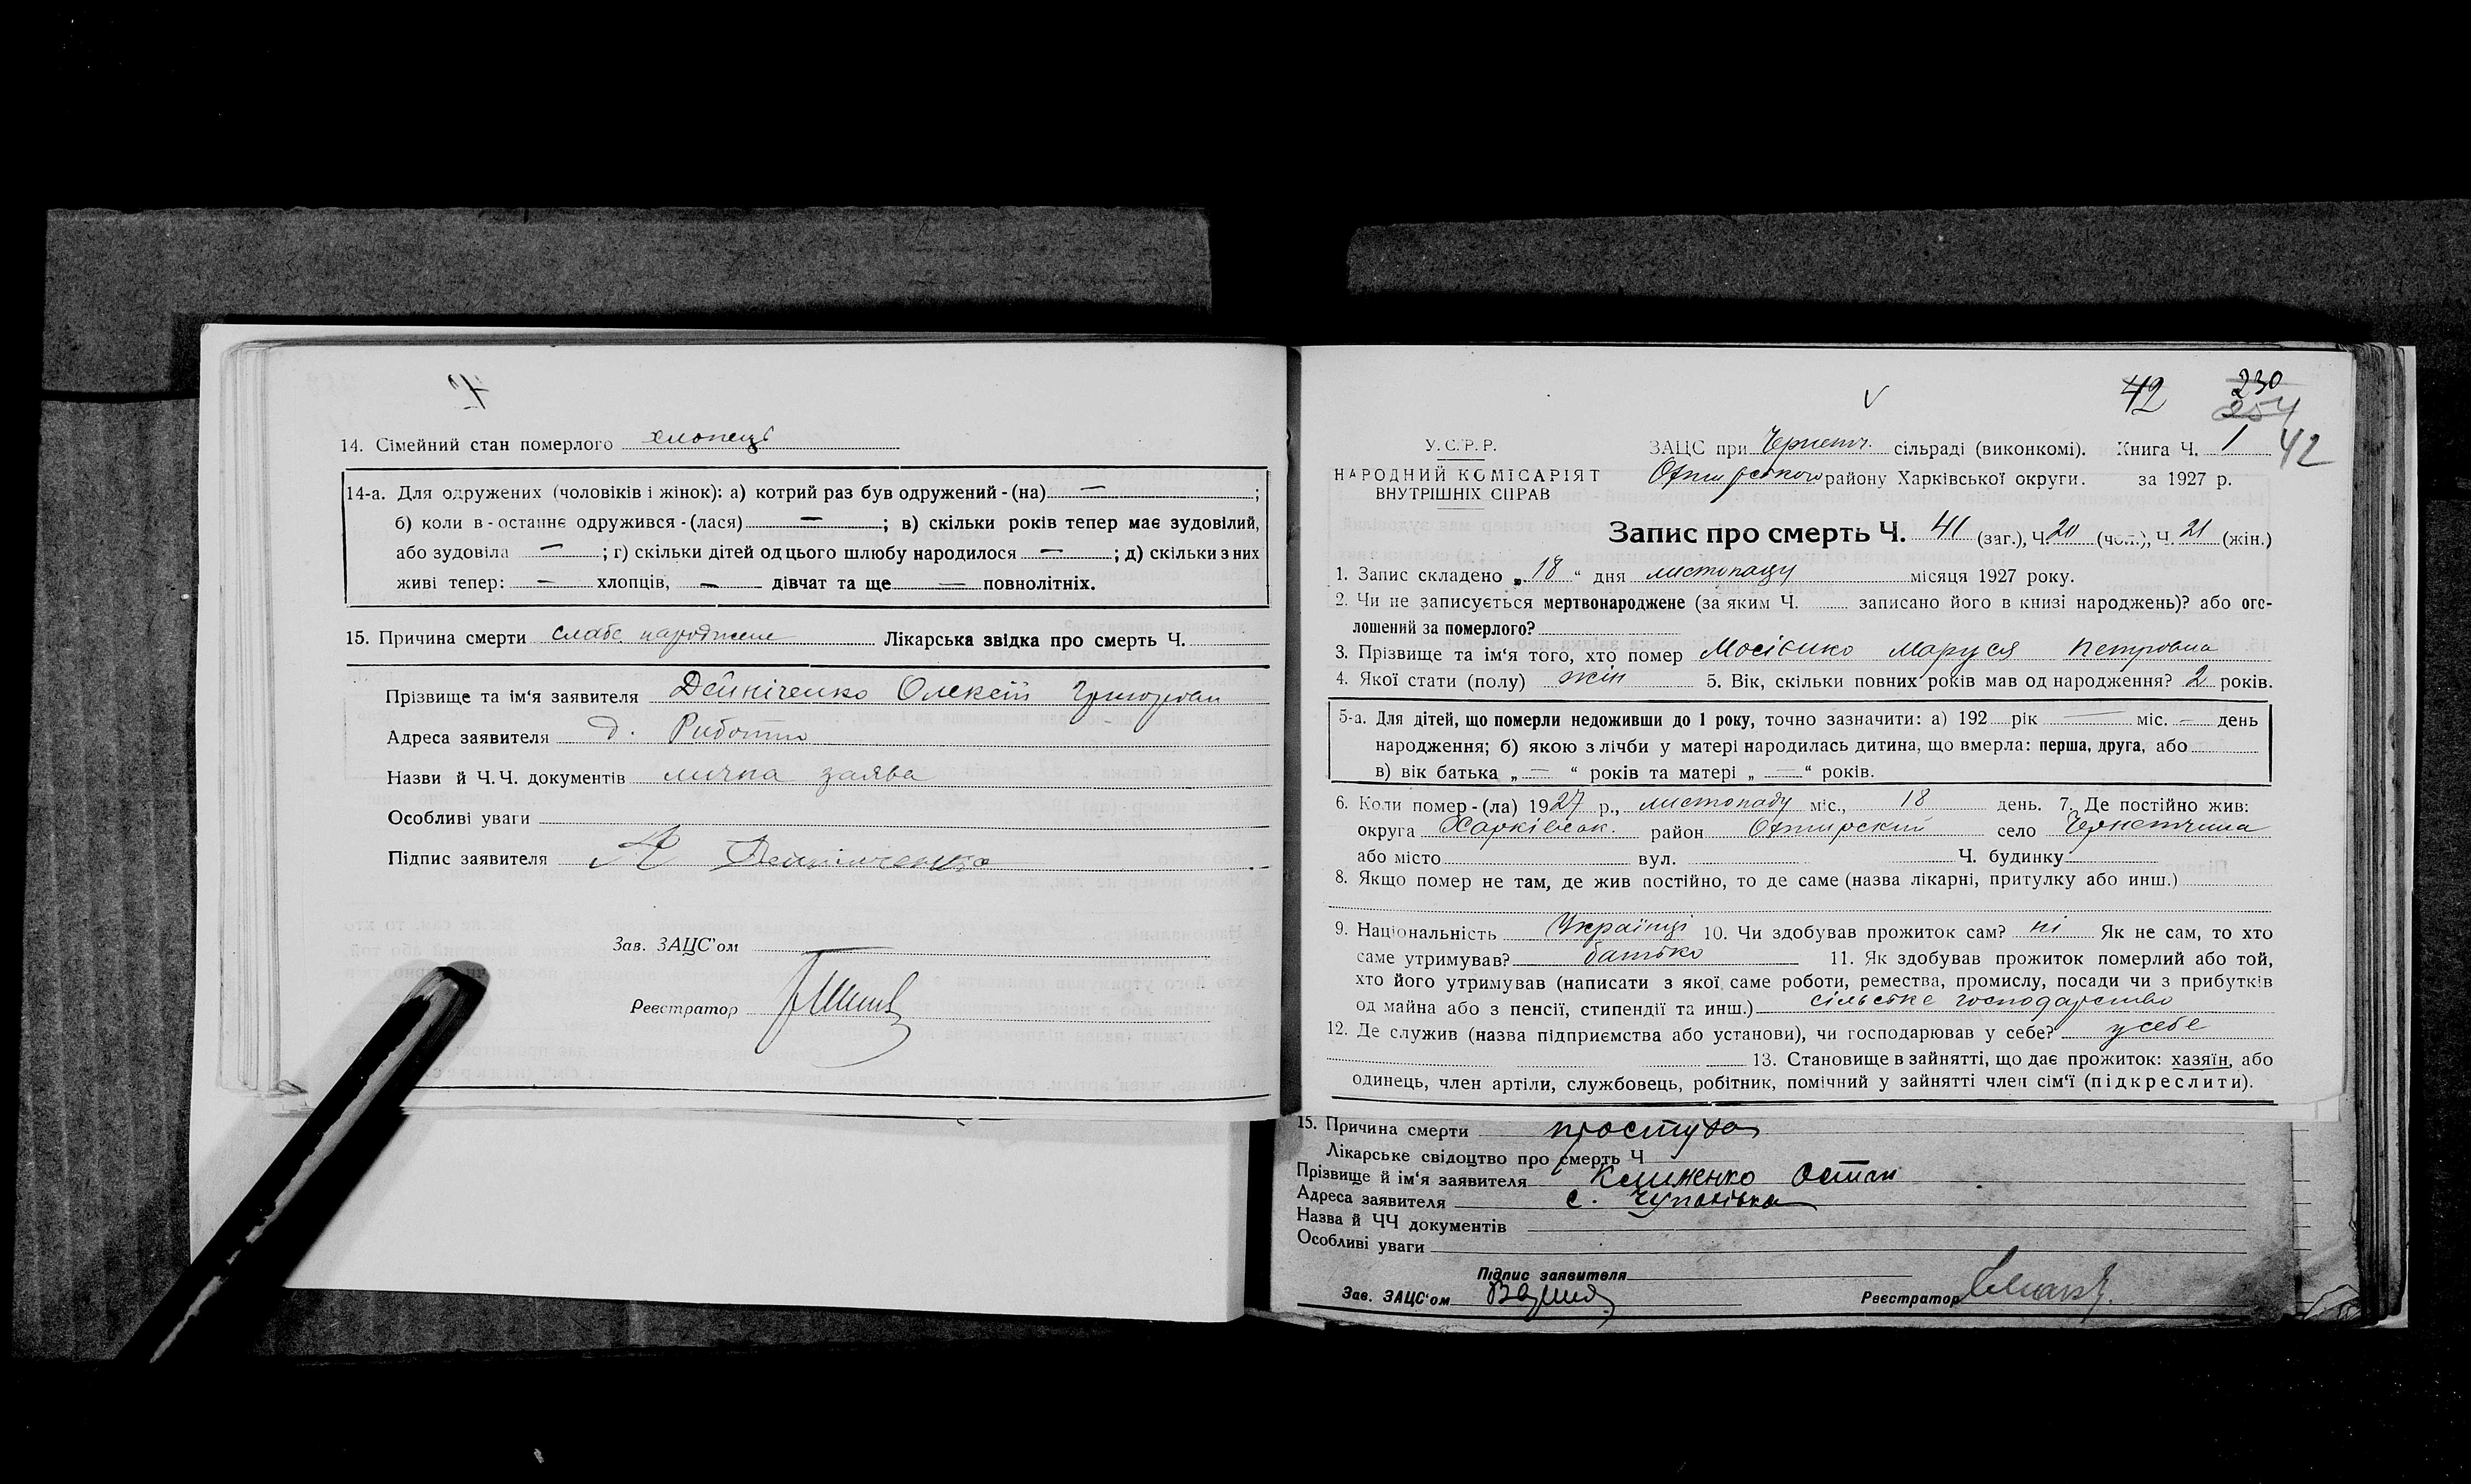 14. Сімейний стан померлого хлопець
14-а. Для одружених (чоловіків і жінок): а) котрий раз був одружений - (на) — ;
б) коли в-останнє одружився - (лася) — ; в) скільки років тепер має зудовілий,
або зудовіла — ; г) скільки дітей од цього шлюбу народилося — ; д) скільки з них
живі тепер: — хлопців, — дівчат та ще — повнолітніх.
15. Причина смерти слабе народжене Лікарська звідка про смерть Ч.
Прізвище та ім'я заявителя Дейніченко Олексій
Адреса заявителя
Назви й Ч.Ч. документів лична заява
Особливі уваги
Підпис заявителя
Зав. ЗАЦС'ом
Реєстратор
42 230
254
У.С.Р.Р. ЗАЦС при Чернетч. сільраді (виконкомі). Книга Ч. 1 42
НАРОДНИЙ КОМІСАРІЯТ Охтирського району Харківської округи. за 1927 р.
ВНУТРІШНІХ СПРАВ
Запис про смерть Ч. 41 (заг.), Ч. 20 (чол.), Ч. 21 (жін.)
1. Запис складено „ 18 “ дня листопаду місяця 1927 року.
2. Чи не записується мертвонароджене (за яким Ч. записано його в книзі народжень)? або ого-
лошений за померлого?
3. Прізвище та ім'я того, хто помер Мосієнко Маруся Петровна
4. Якої стати (полу) жін 5. Вік, скільки повних років мав од народження? 2 років.
5-а. Для дітей, що померли недоживши до 1 року, точно зазначити: а) 192 рік — міс. — день
народження; б) якою з лічби у матері народилась дитина, що вмерла: перша, друга, або
в) вік батька „ — “ років та матері „ — “ років.
6. Коли помер - (ла) 1927 р., листопаду міс., 18 день. 7. Де постійно жив:
округа Харківськ. район Охтирский село Чернетчина
або місто вул. Ч. будинку
8. Якщо помер не там, де жив постійно, то де саме (назва лікарні, притулку або инш.)
9. Національність Українці 10. Чи здобував прожиток сам? ні Як не сам, то хто
саме утримував? батько 11. Як здобував прожиток померлий або той,
хто його утримував (написати з якої саме роботи, ремества, промислу, посади чи з прибутків
од майна або з пенсії, стипендії та инш.) сільське господарство
12. Де служив (назва підприємства або установи), чи господарював у себе? у себе
13. Становище в зайнятті, що дає прожиток: хазяїн, або
одинець, член артіли, службовець, робітник, помічний у зайнятті член сім'ї (підкреслити).
15. Причина смерти простуда
Лікарське свідоцтво про смерть Ч
Прізвище й ім'я заявителя Клименко Остап
Адреса заявителя с. Чупахівка
Назва й ЧЧ документів
Особливі уваги
Підпис заявителя
Зав. ЗАЦС'ом Реєстратор